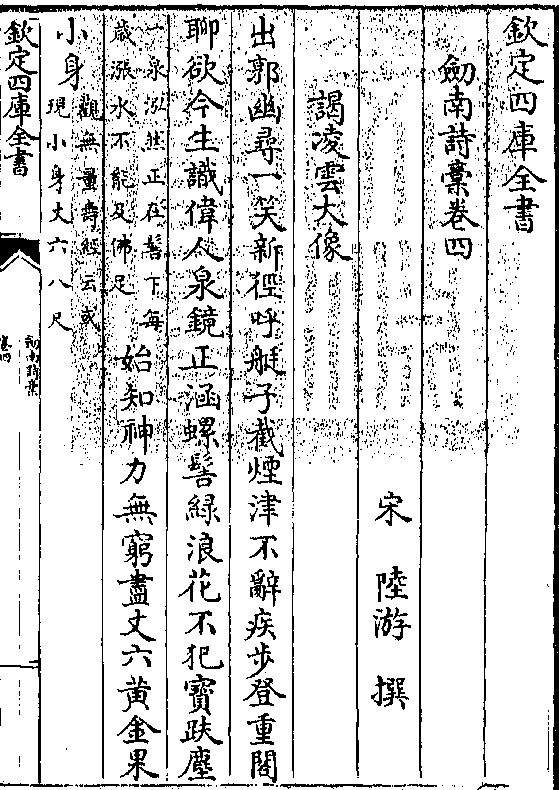 欽定四庫全書
劒南詩稾卷四
宋 陸游 撰
謁凌雲大像
出郭幽尋一笑新徑呼艇子截煙津不辭疾步登重閣
聊欲今生識偉人泉鏡正涵螺髻綠浪花不犯寶趺塵
一泉泓然正在髻下每
歲漲水不能及佛足
始知神力無窮盡丈六黃金果
小身
觀無量壽經云或
現小身丈六八尺
欽定四庫全書
劒南詩稾
卷四